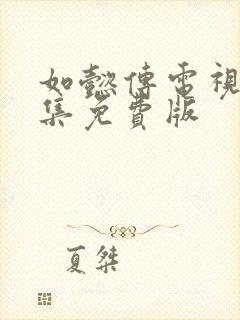 如懿傳電視
集免費版
夏桀